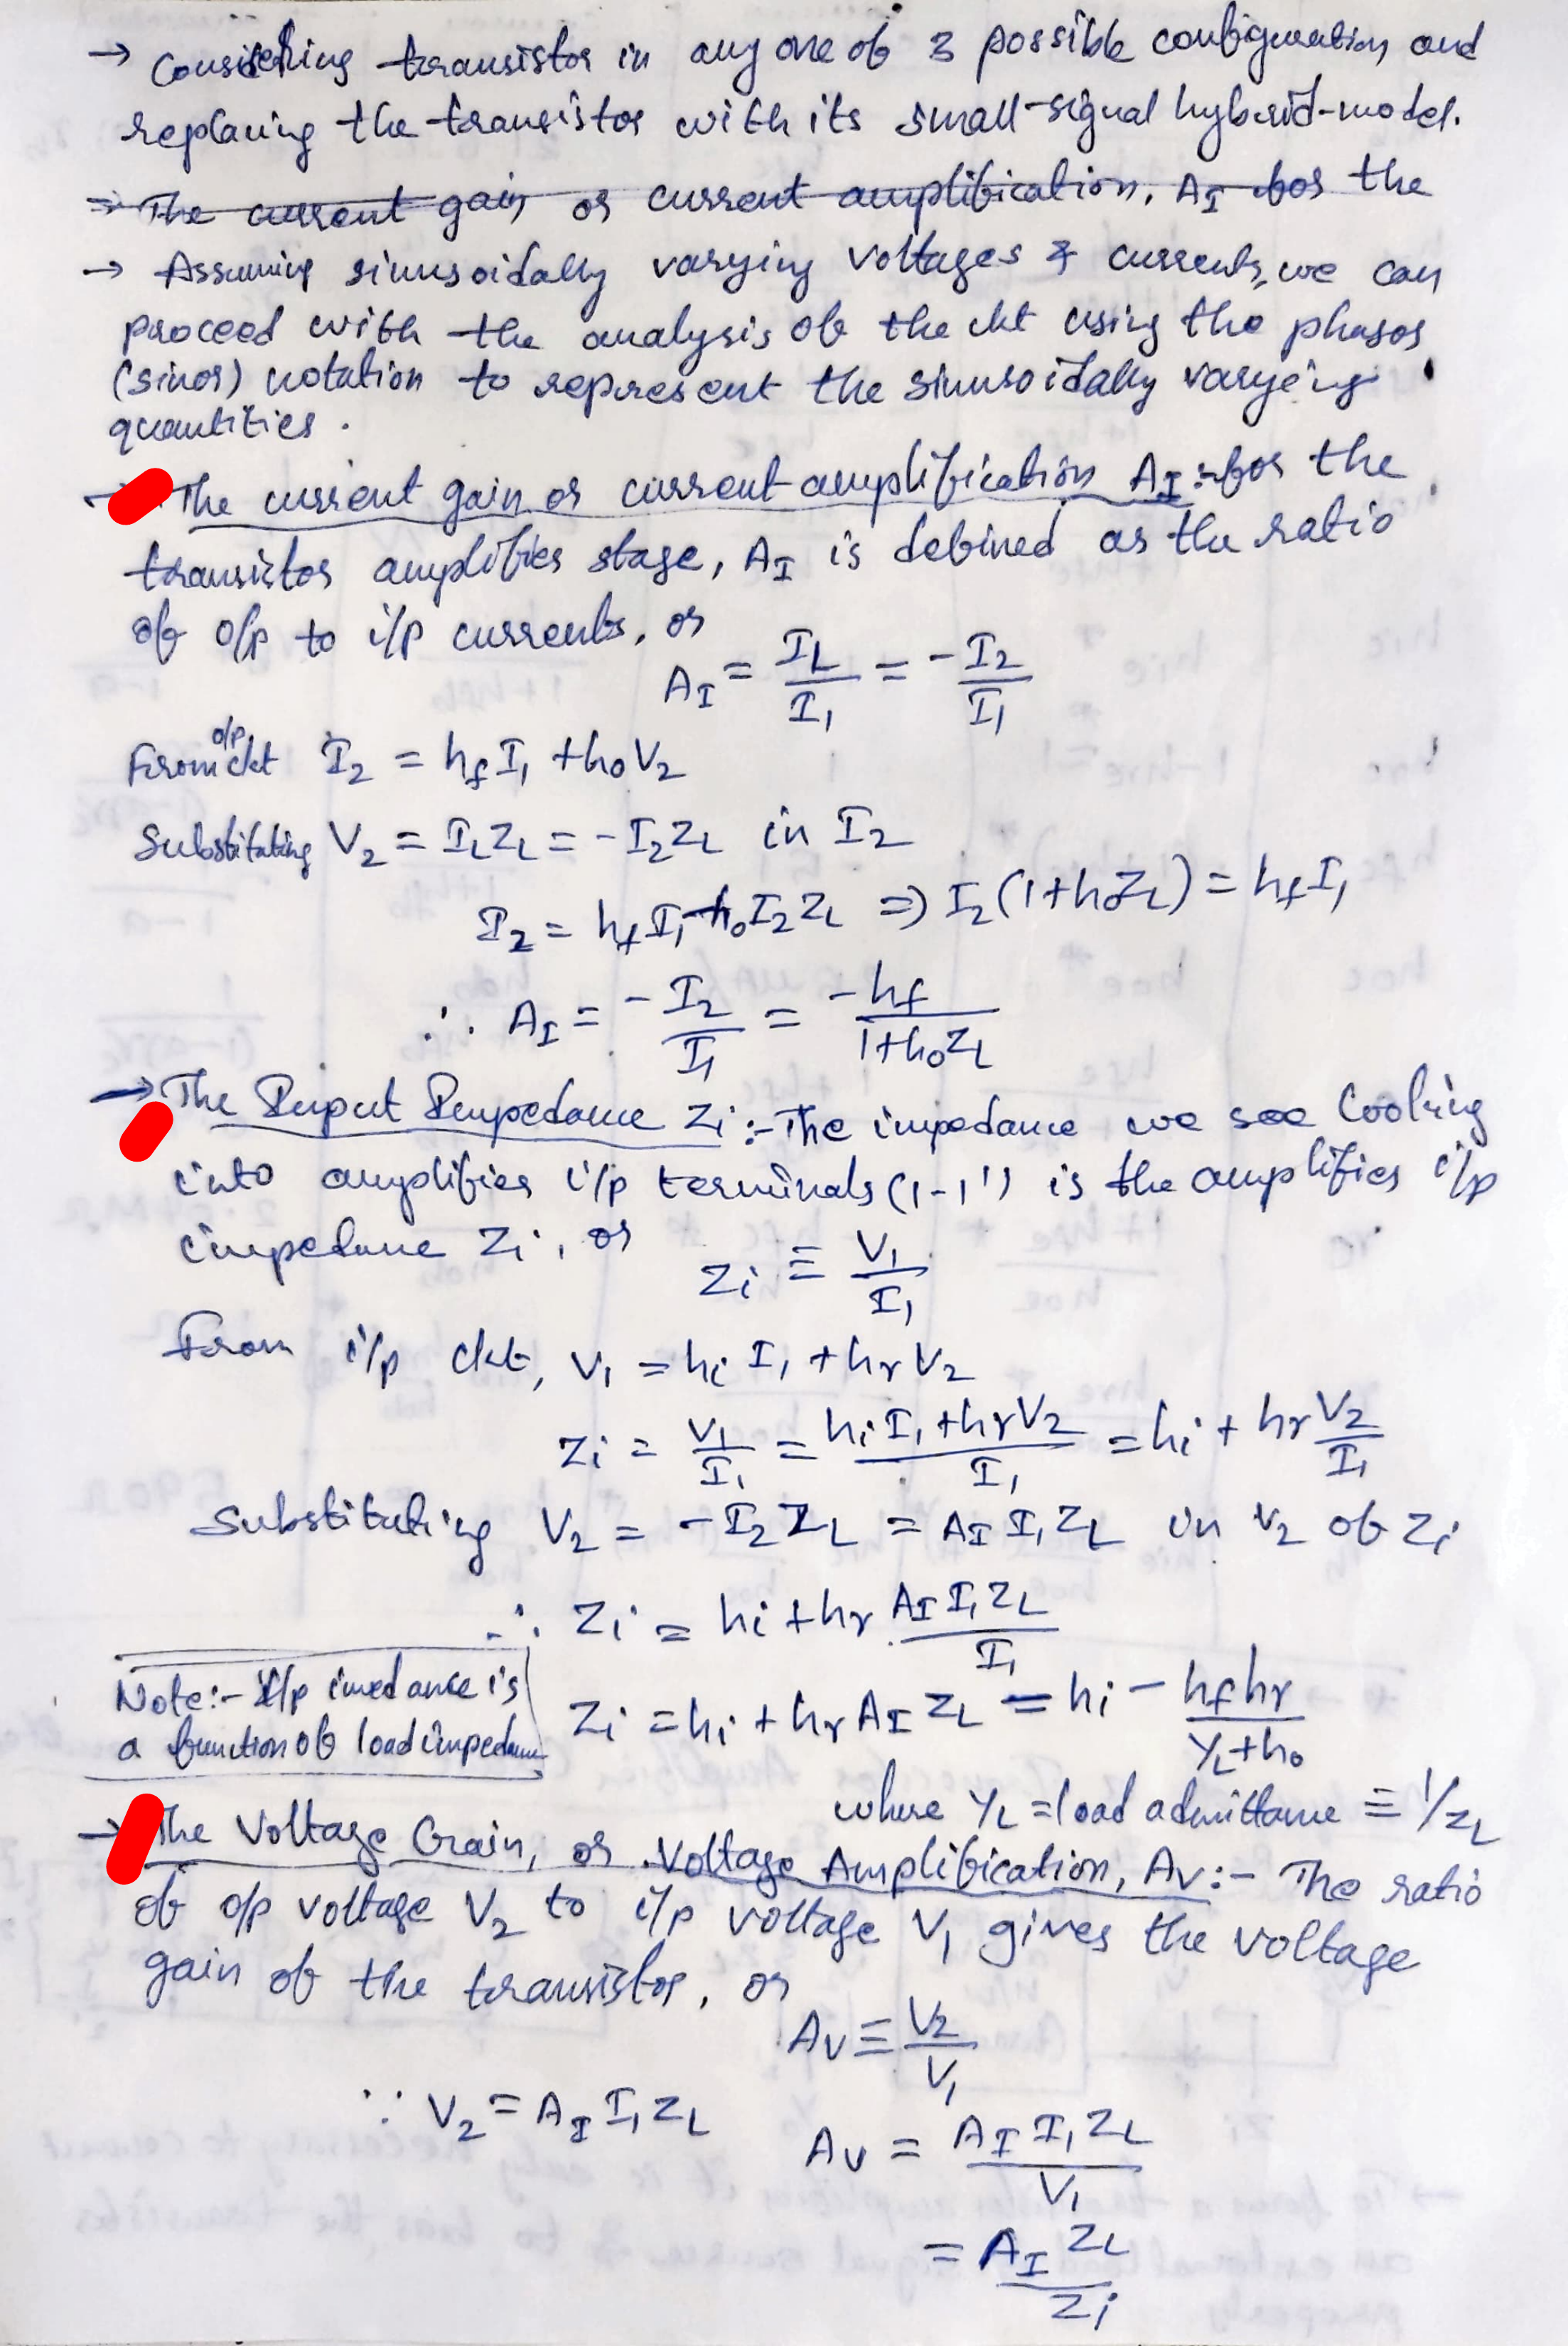 → Considering transistor in any one of 3 possible configuration and
replacing the transistor with its small-signal hybrid-model.
⇒ The current gain or current amplification, A_I for the
→ Assuming sinusoidally varying voltages & currents, we can
proceed with the analysis of the ckt using the phasor
(sinor) notation to represent the sinusoidally varying
quantities.
→ The current gain or current amplification A_I :- for the
transistor amplifier stage, A_I is defined as the ratio
of o/p to i/p currents, or
A_I = I_L/I_1 = -I_2/I_1
From o/p ckt I_2 = h_f I_1 + h_o V_2
Substituting V_2 = I_L Z_L = -I_2 Z_L in I_2
I_2 = h_f I_1 - h_o I_2 Z_L ⇒ I_2 (1 + h_o Z_L) = h_f I_1
∴ A_I = -I_2/I_1 = -h_f/(1 + h_o Z_L)
→ The Input Impedance Z_i :- The impedance we see looking
into amplifier i/p terminals (1-1') is the amplifier i/p
impedance Z_i, or
Z_i ≡ V_1/I_1
From i/p ckt, V_1 = h_i I_1 + h_r V_2
Z_i = V_1/I_1 = (h_i I_1 + h_r V_2)/I_1 = h_i + h_r V_2/I_1
Substituting V_2 = -I_2 Z_L = A_I I_1 Z_L in V_2 of Z_i
∴ Z_i = h_i + h_r A_I I_1 Z_L/I_1
Note:- I/p imedance is
a function of load impedance
Z_i = h_i + h_r A_I Z_L = h_i - h_f h_r/(Y_L + h_o)
where Y_L = load admittance ≡ 1/Z_L
→ The Voltage Gain, or Voltage Amplification, A_V :- The ratio
of o/p voltage V_2 to i/p voltage V_1 gives the voltage
gain of the transistor, or
A_V ≡ V_2/V_1
∵ V_2 = A_I I_1 Z_L
A_V = A_I I_1 Z_L/V_1
= A_I Z_L/Z_i